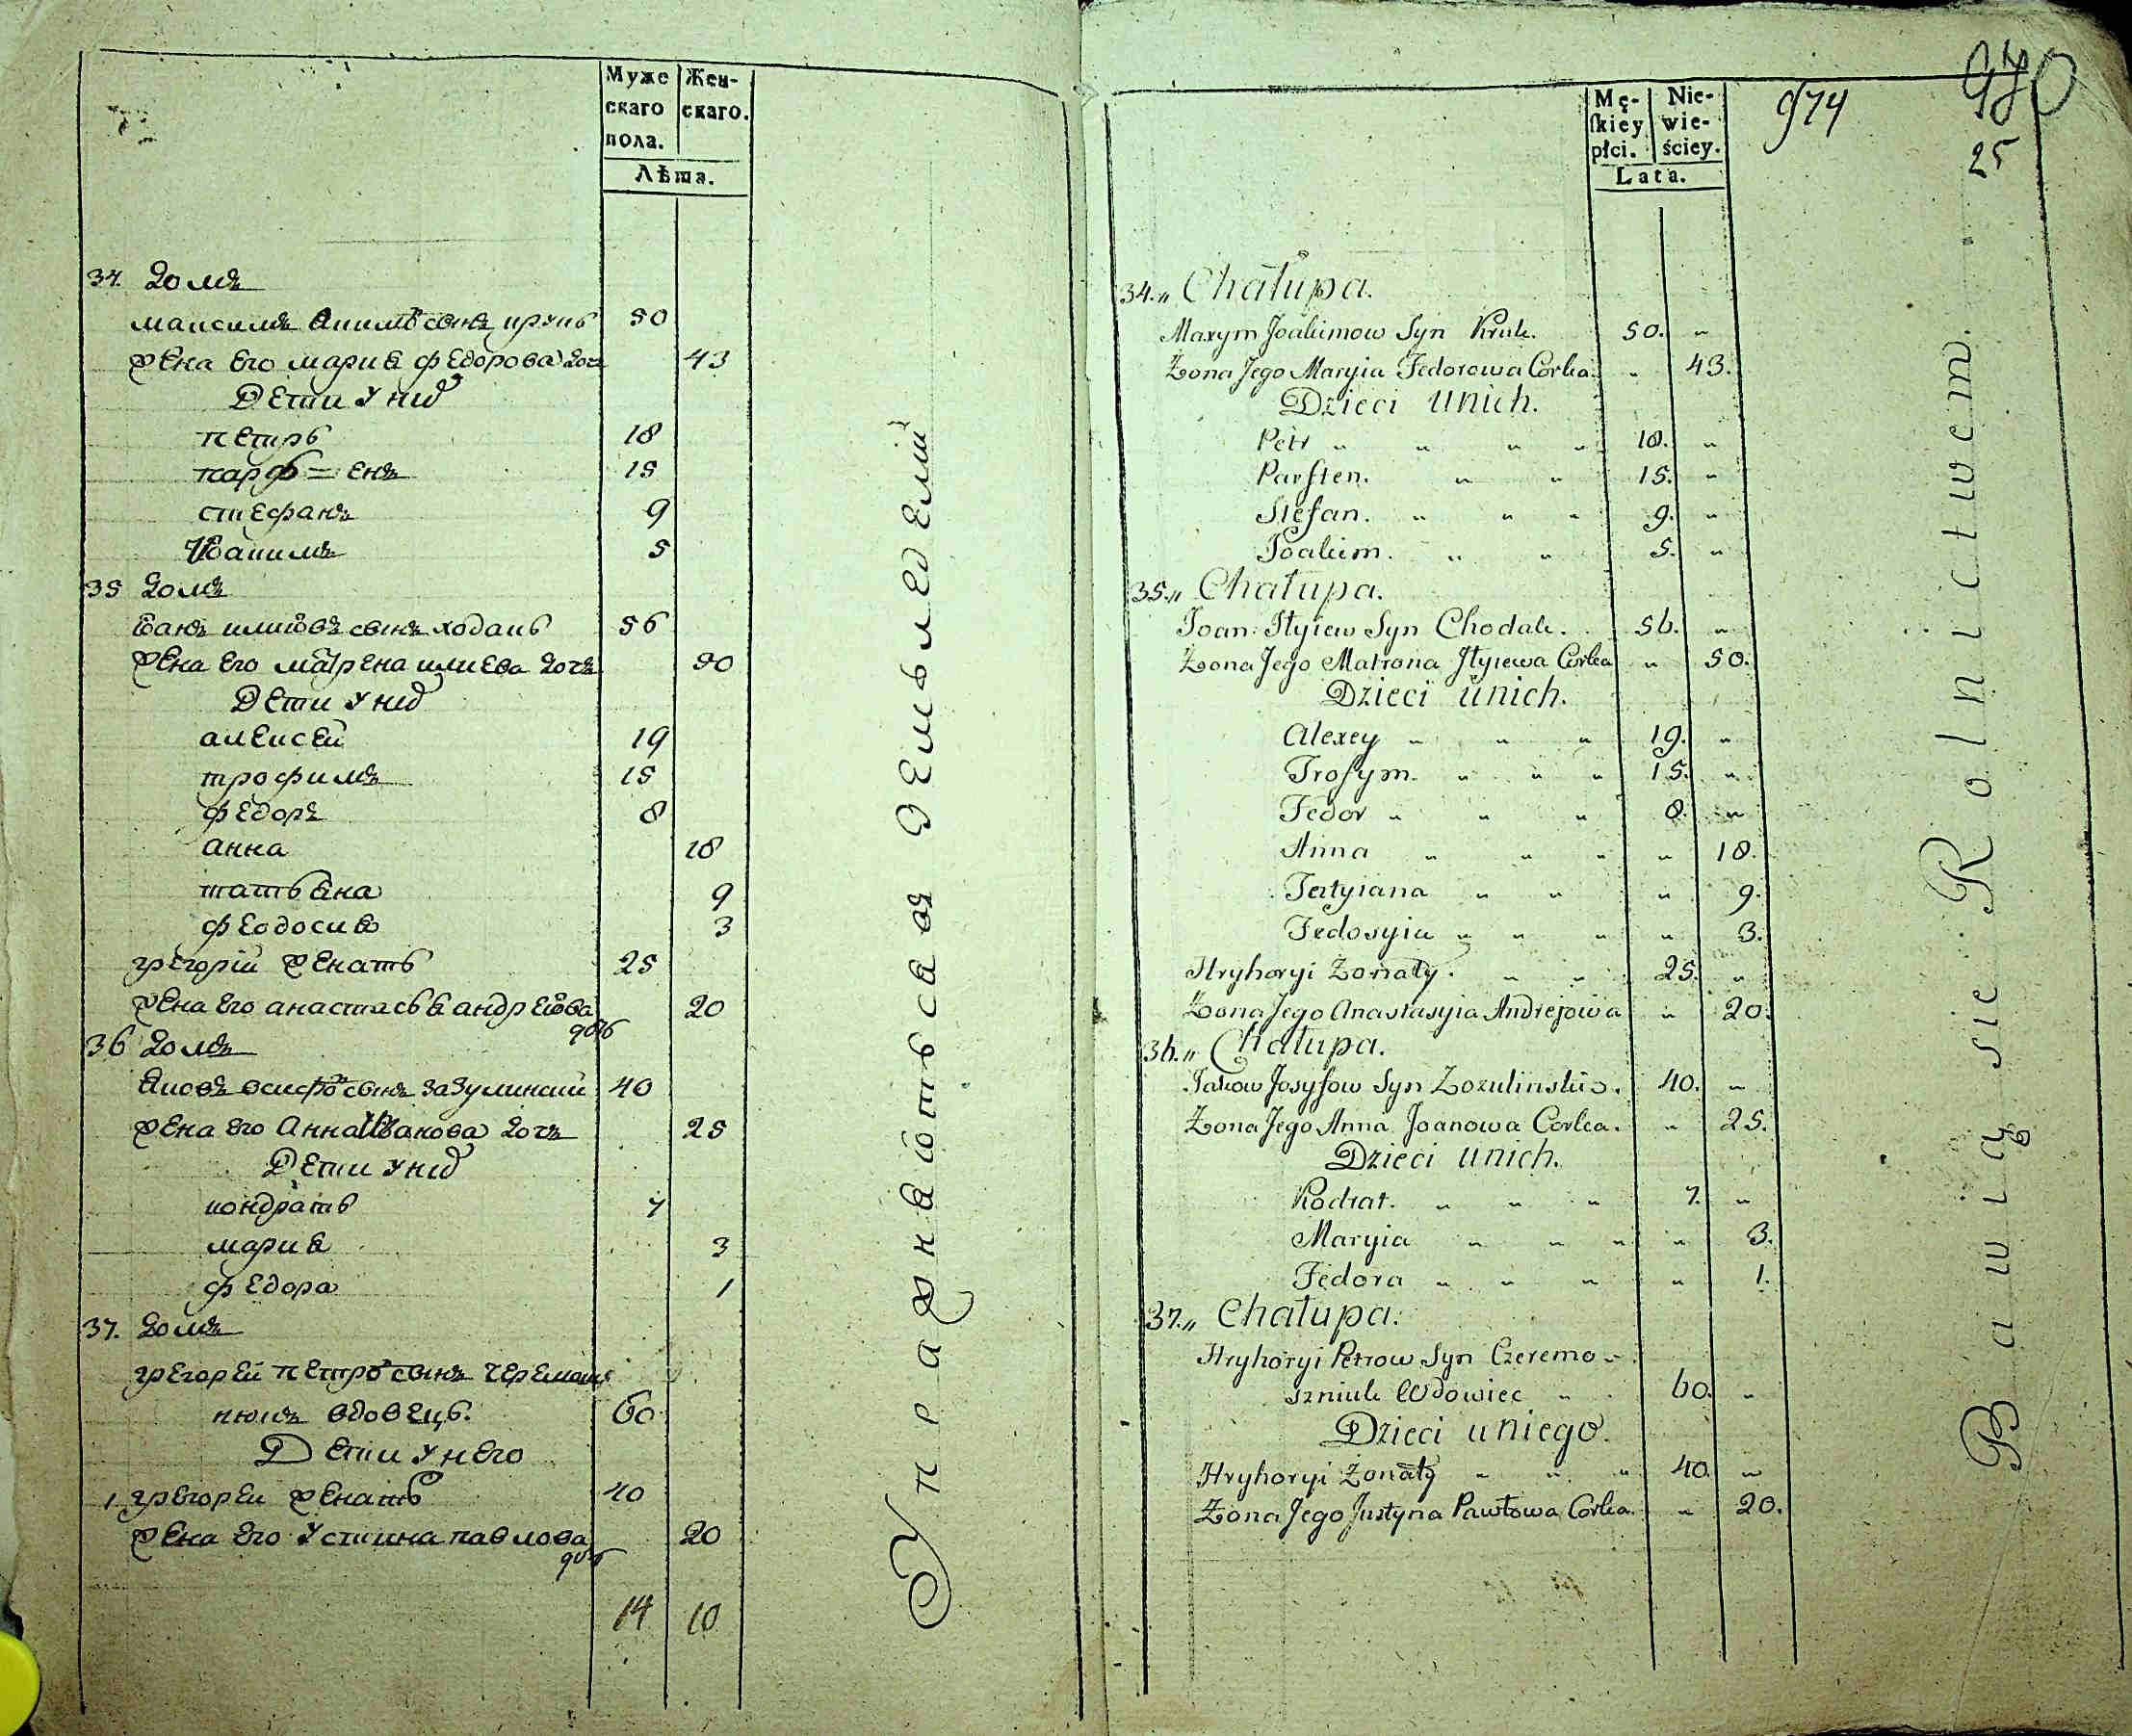 Муже
скаго
пола.
Жен-
скаго.
Лѣта.
34. домъ
максимъ Якимовъ сынъ крукъ 50
жена его мария федорова дочь 43
Дети у них
петръ 18
парф=енъ 15
стефанъ 9
Иоакимъ 5
35 домъ
иоанъ илиовъ сынъ ходакъ 56
жена его матрена илиева дочь 50
Дети у них
алексей 19
трофимъ 15
федоръ 8
анна 18
татьяна 9
феодосия 3
грегорiй женатъ 25
жена его анастасья андреиова 20
дочь
36 домъ
яковъ осифовъ сынъ зазулинский 40
жена его Анна Иванова дочь 25
Дети у них
кондратъ 7
мария 3
федора 1
37. домъ
грегорей петровъ сынъ черемош
нюкъ вдовецъ. 60
Дети у него
1 грегорей женатъ 40
жена его устина павлова 20
дочь
14 10
Упражняютъся земьледелием
Mę-
skiey
płci.
Nie-
wie-
ściey.
Lata.
974
970
25
34.„ Chałupa.
Maxym Joakimow Syn Kruk. 50. „
Żona Jego Maryia Fedorowa Corka. „ 43.
Dzieci unich.
Petr „ „ „ „ 18. „
Parften. „ „ 15. „
Stefan. „ „ „ 9. „
Joakim. „ „ 5. „
35.„ Chałupa.
Joan Jlyiew Syn Chodak. 56. „
Żona Jego Matrona Jlyiewa Corka „ 50.
Dzieci unich.
Alexey „ „ „ 19. „
Trofym. „ „ „ 15. „
Fedor „ „ „ 8. „
Anna „ „ „ „ 18.
Tatyiana „ „ „ 9.
Fedosyia „ „ „ „ 3.
Hryhoryi Żonaty. „ „ 25. „
Żona Jego Anastasyia Andrejowa „ 20.
36.„ Chałupa.
Jakow Josyfow Syn Zozulinskio. 40. „
Żona Jego Anna Joanowa Corka. „ 25.
Dzieci unich.
Kodrat. „ „ „ 7. „
Maryia „ „ „ „ 3.
Fedora „ „ „ „ 1.
37.„ Chałupa.
Hryhoryi Petrow Syn Czeremo-
szniuk Wdowiec „ 60. „
Dzieci uniego.
Hryhoryi Żonaty „ „ „ 40. „
Żona Jego Justyna Pawłowa Corka. „ 20.
Bawią się Rolnictwem.